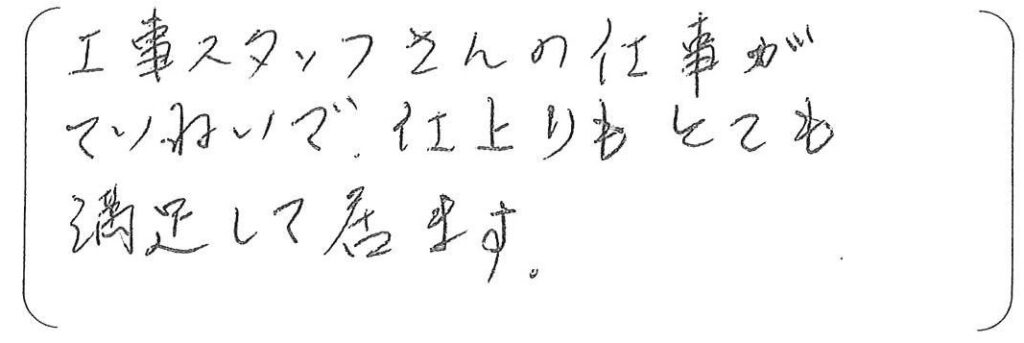 工事スタッフさんの仕事が
ていねいで、仕上りもとても
満足して居ます。